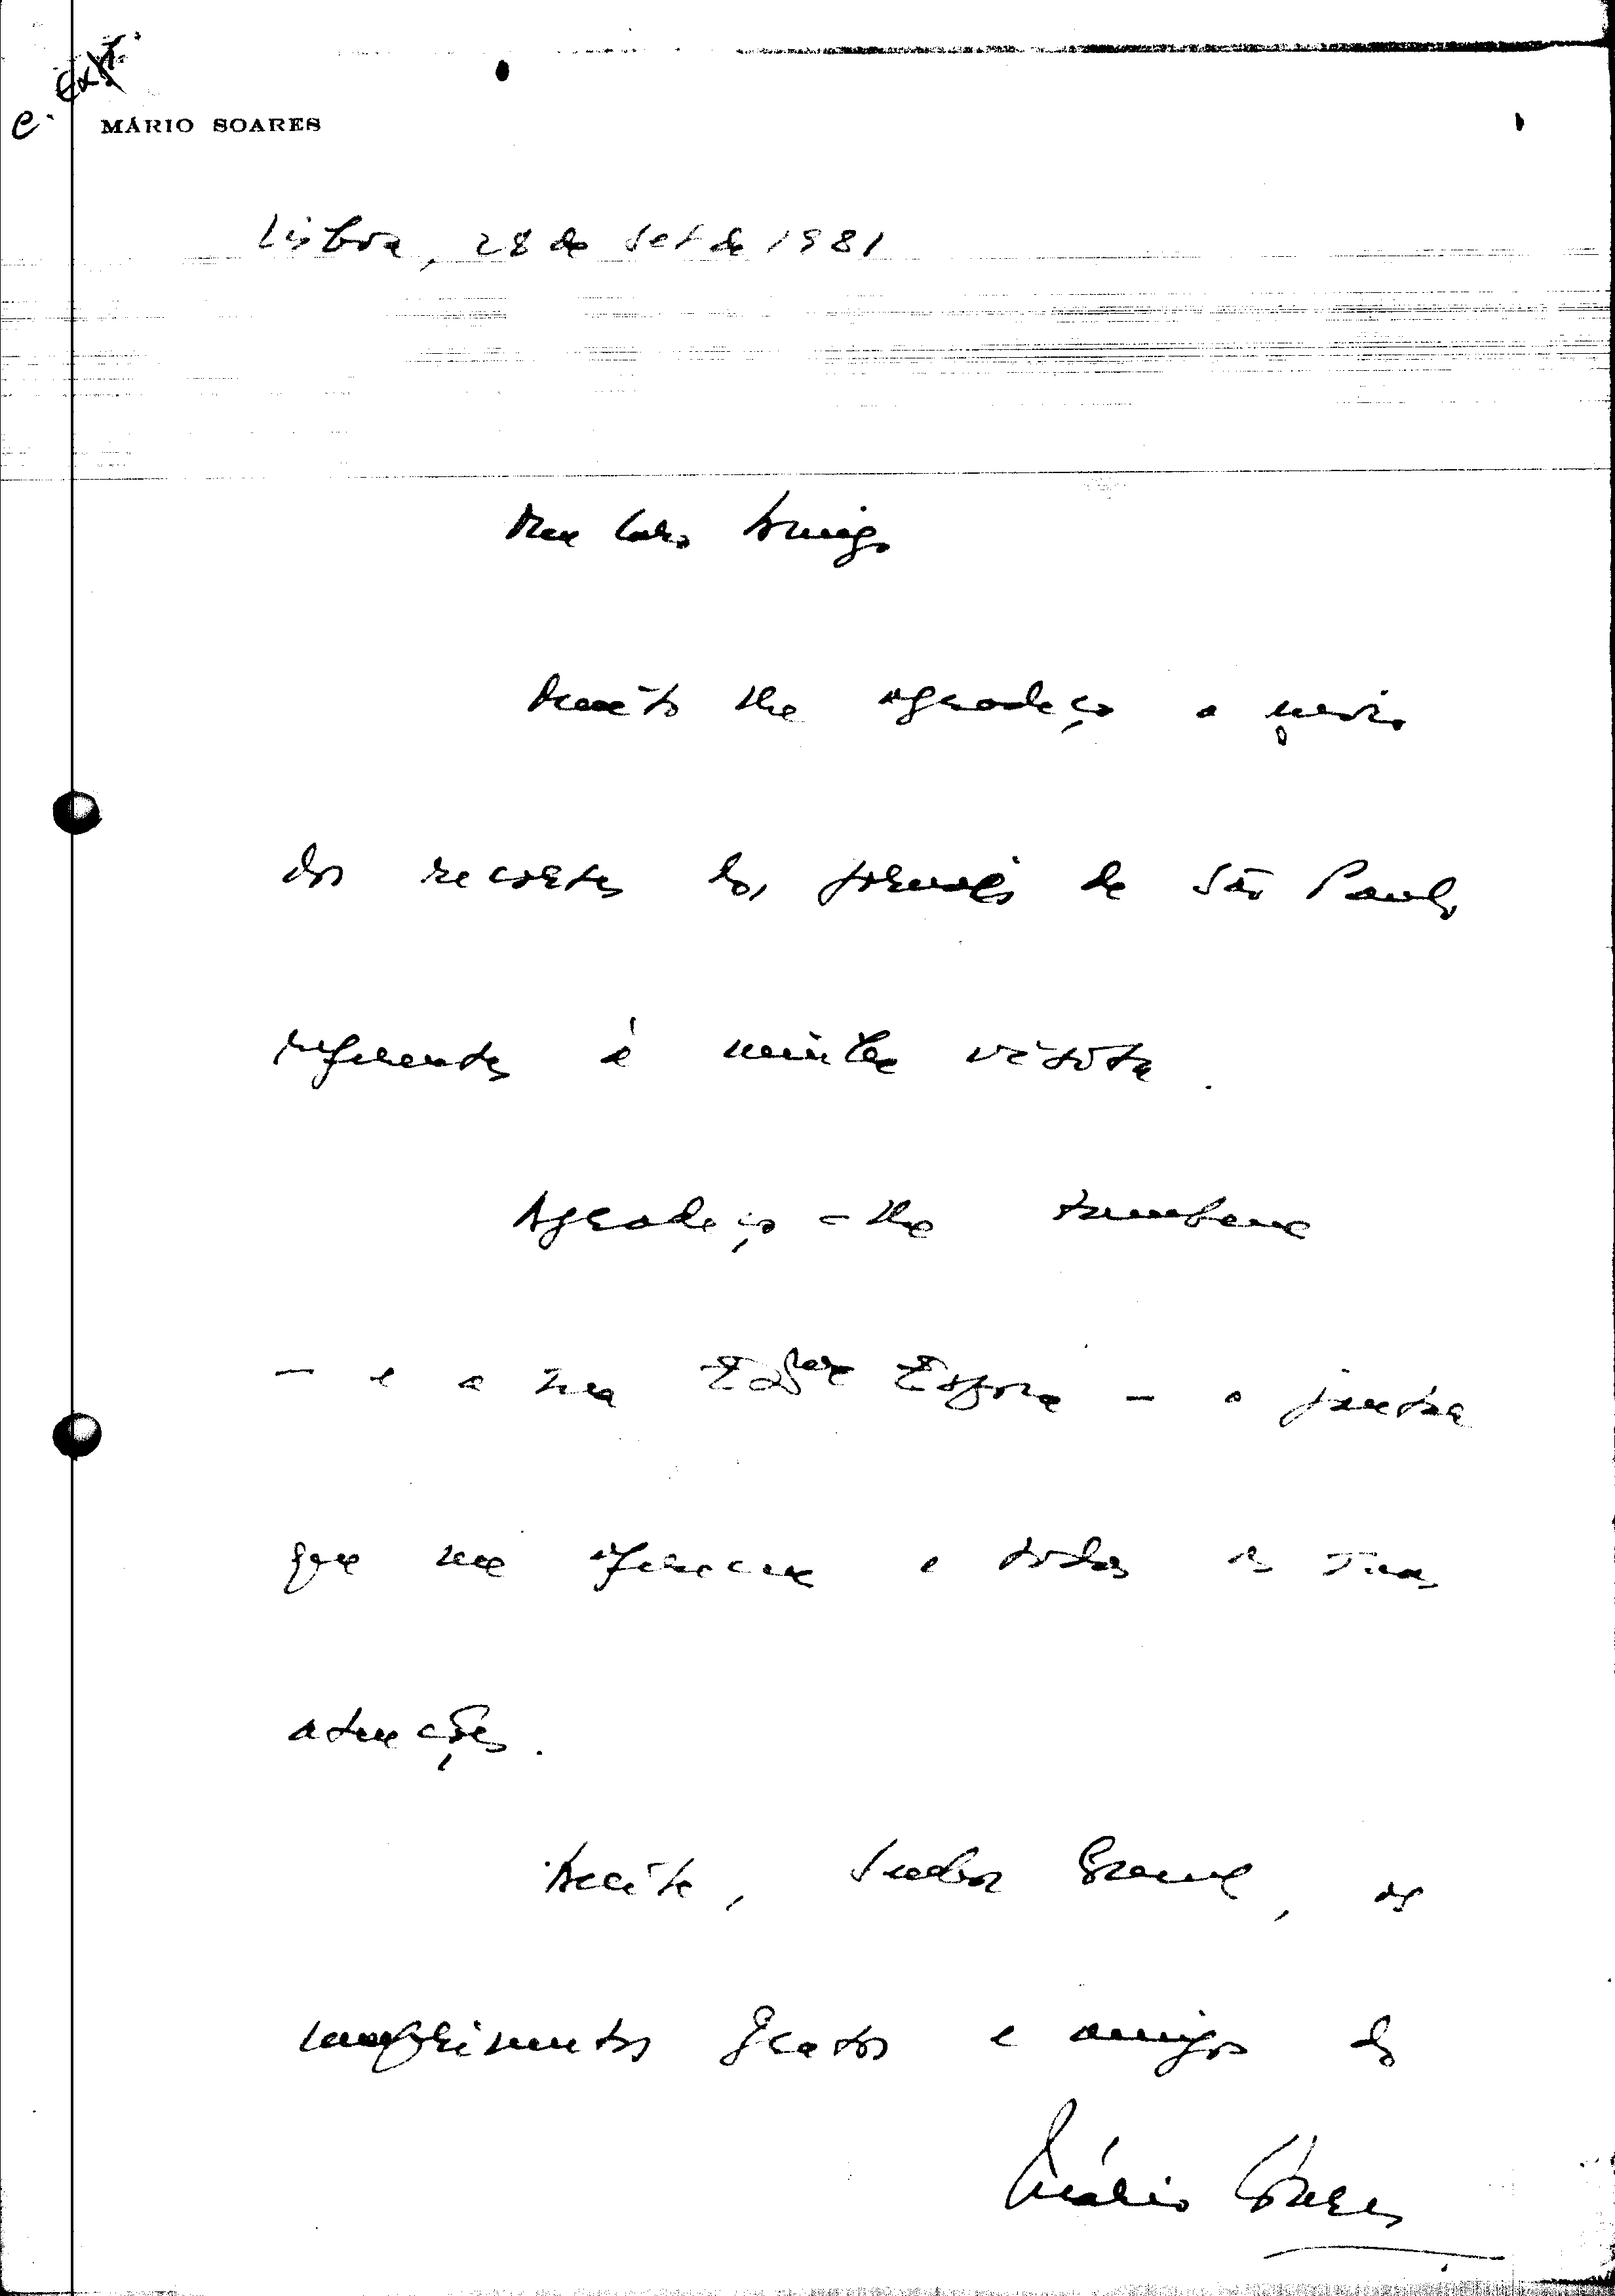 Ext.
e.
MÁRIO SOARES
Lisboa, 28 de Set de 1981
Meu Caro Amigo
Muito lhe agradeço o envio
dos recortes dos jornais de São Paulo
referentes à minha visita.
Agradeço-lhe tambem
— e a sua Exma Esposa — o jantar
que me ofereceu e todas as suas
atenções.
Aceite, Senhor, os
cumprimentos gratos e amigos do
Mário Soares